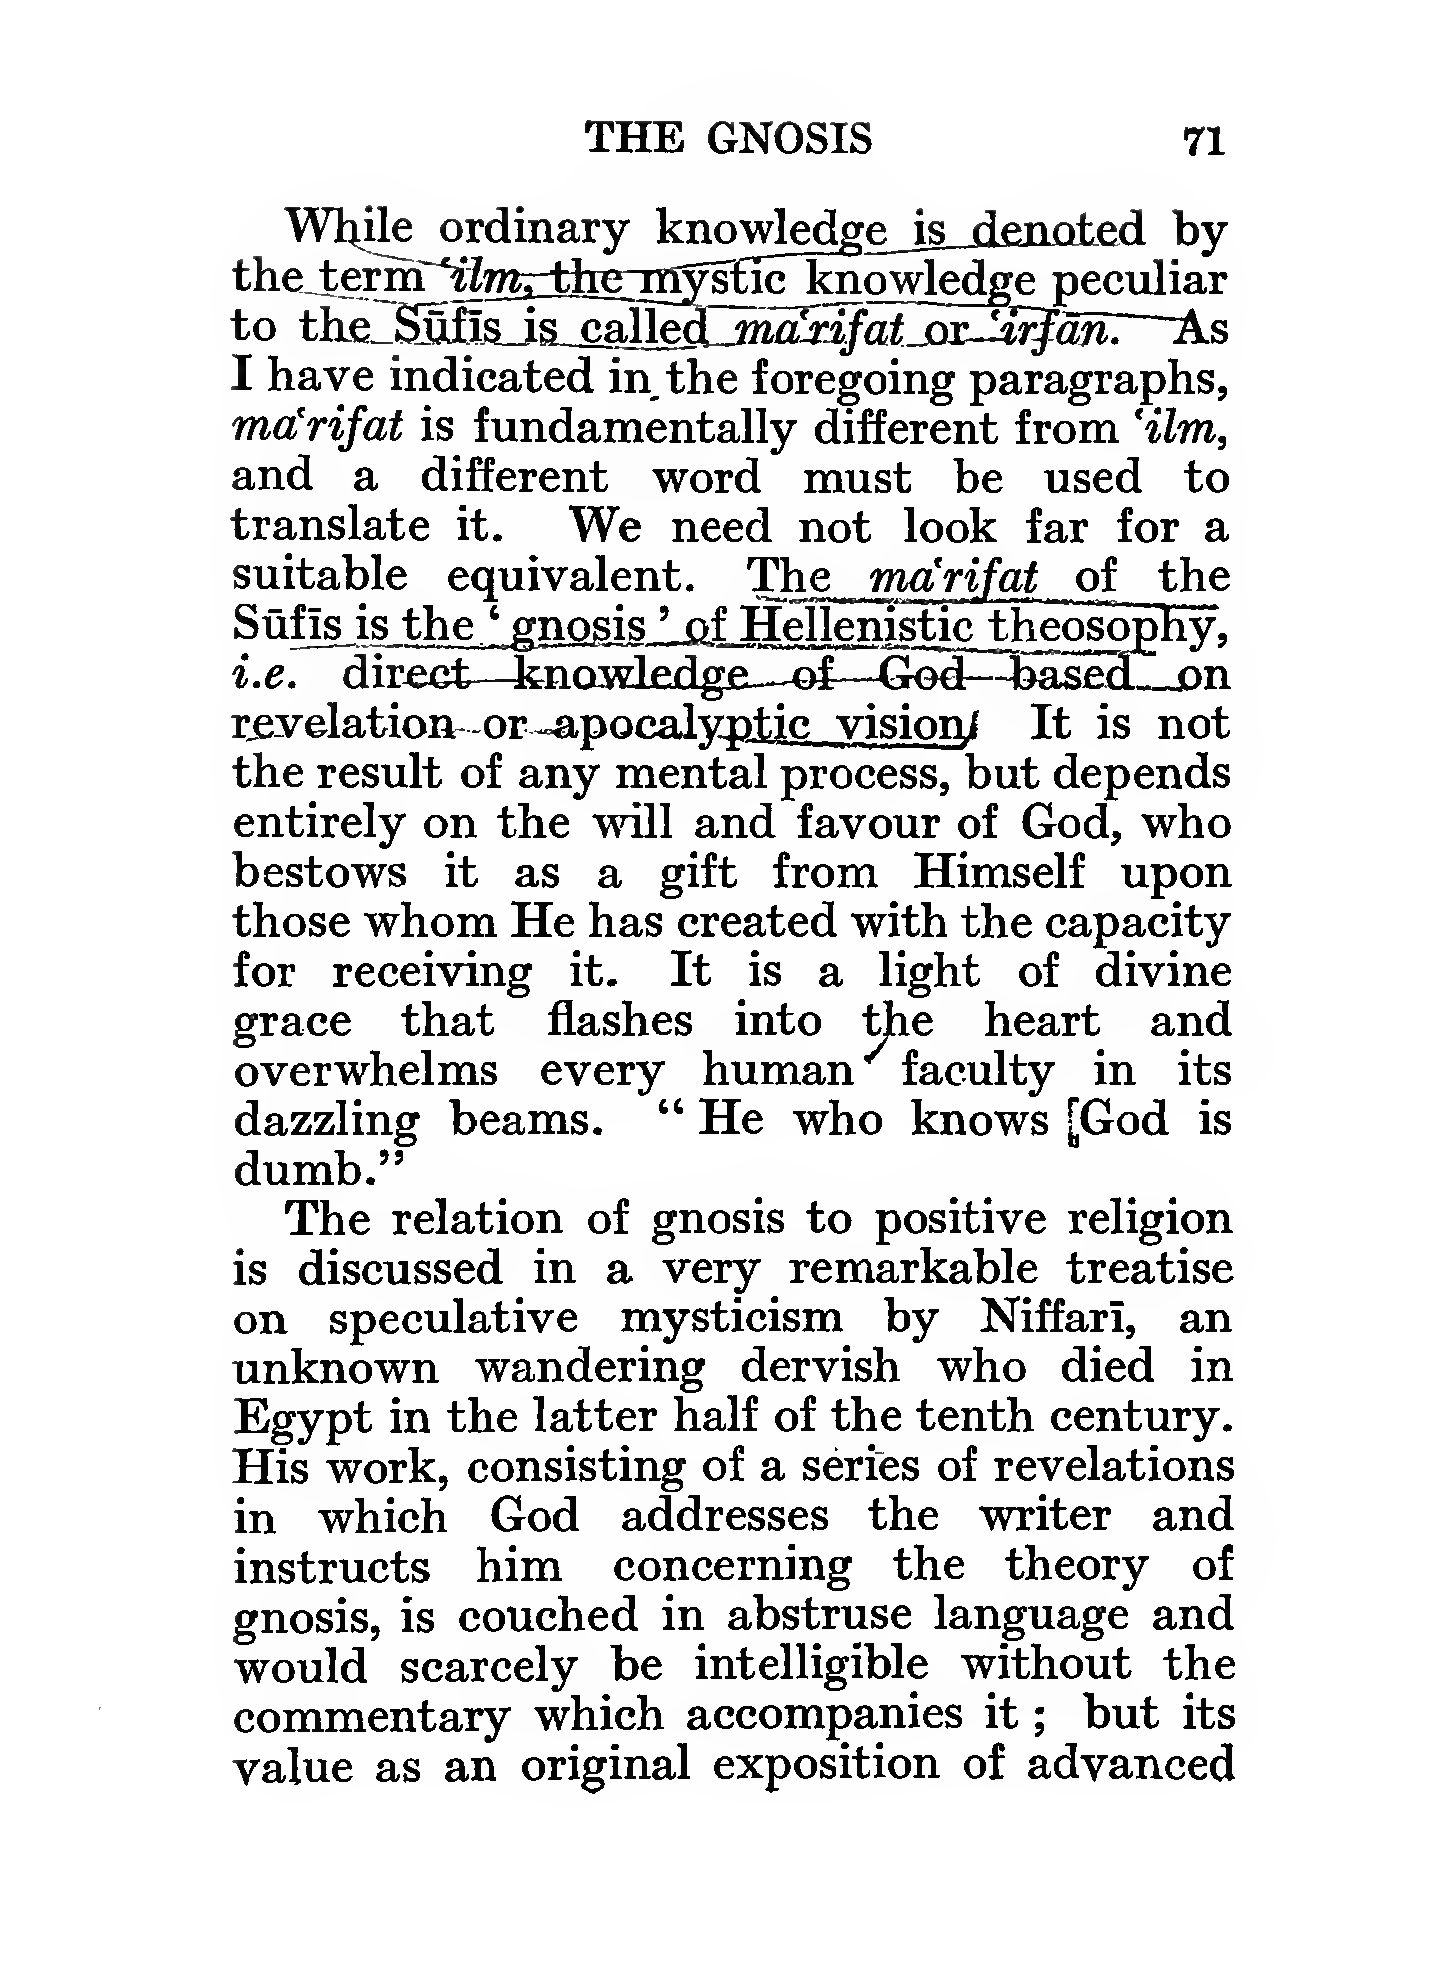 THE GNOSIS 71
While ordinary knowledge is denoted by
the term ‘ilm, the mystic knowledge peculiar
to the Sūfīs is called ma‘rifat or ‘irfān. As
I have indicated in the foregoing paragraphs,
ma‘rifat is fundamentally different from ‘ilm,
and a different word must be used to
translate it. We need not look far for a
suitable equivalent. The ma‘rifat of the
Sūfīs is the ‘ gnosis ’ of Hellenistic theosophy,
i.e. direct knowledge of God based on
revelation or apocalyptic vision. It is not
the result of any mental process, but depends
entirely on the will and favour of God, who
bestows it as a gift from Himself upon
those whom He has created with the capacity
for receiving it. It is a light of divine
grace that flashes into the heart and
overwhelms every human faculty in its
dazzling beams. “ He who knows God is
dumb.”
The relation of gnosis to positive religion
is discussed in a very remarkable treatise
on speculative mysticism by Niffarī, an
unknown wandering dervish who died in
Egypt in the latter half of the tenth century.
His work, consisting of a series of revelations
in which God addresses the writer and
instructs him concerning the theory of
gnosis, is couched in abstruse language and
would scarcely be intelligible without the
commentary which accompanies it ; but its
value as an original exposition of advanced